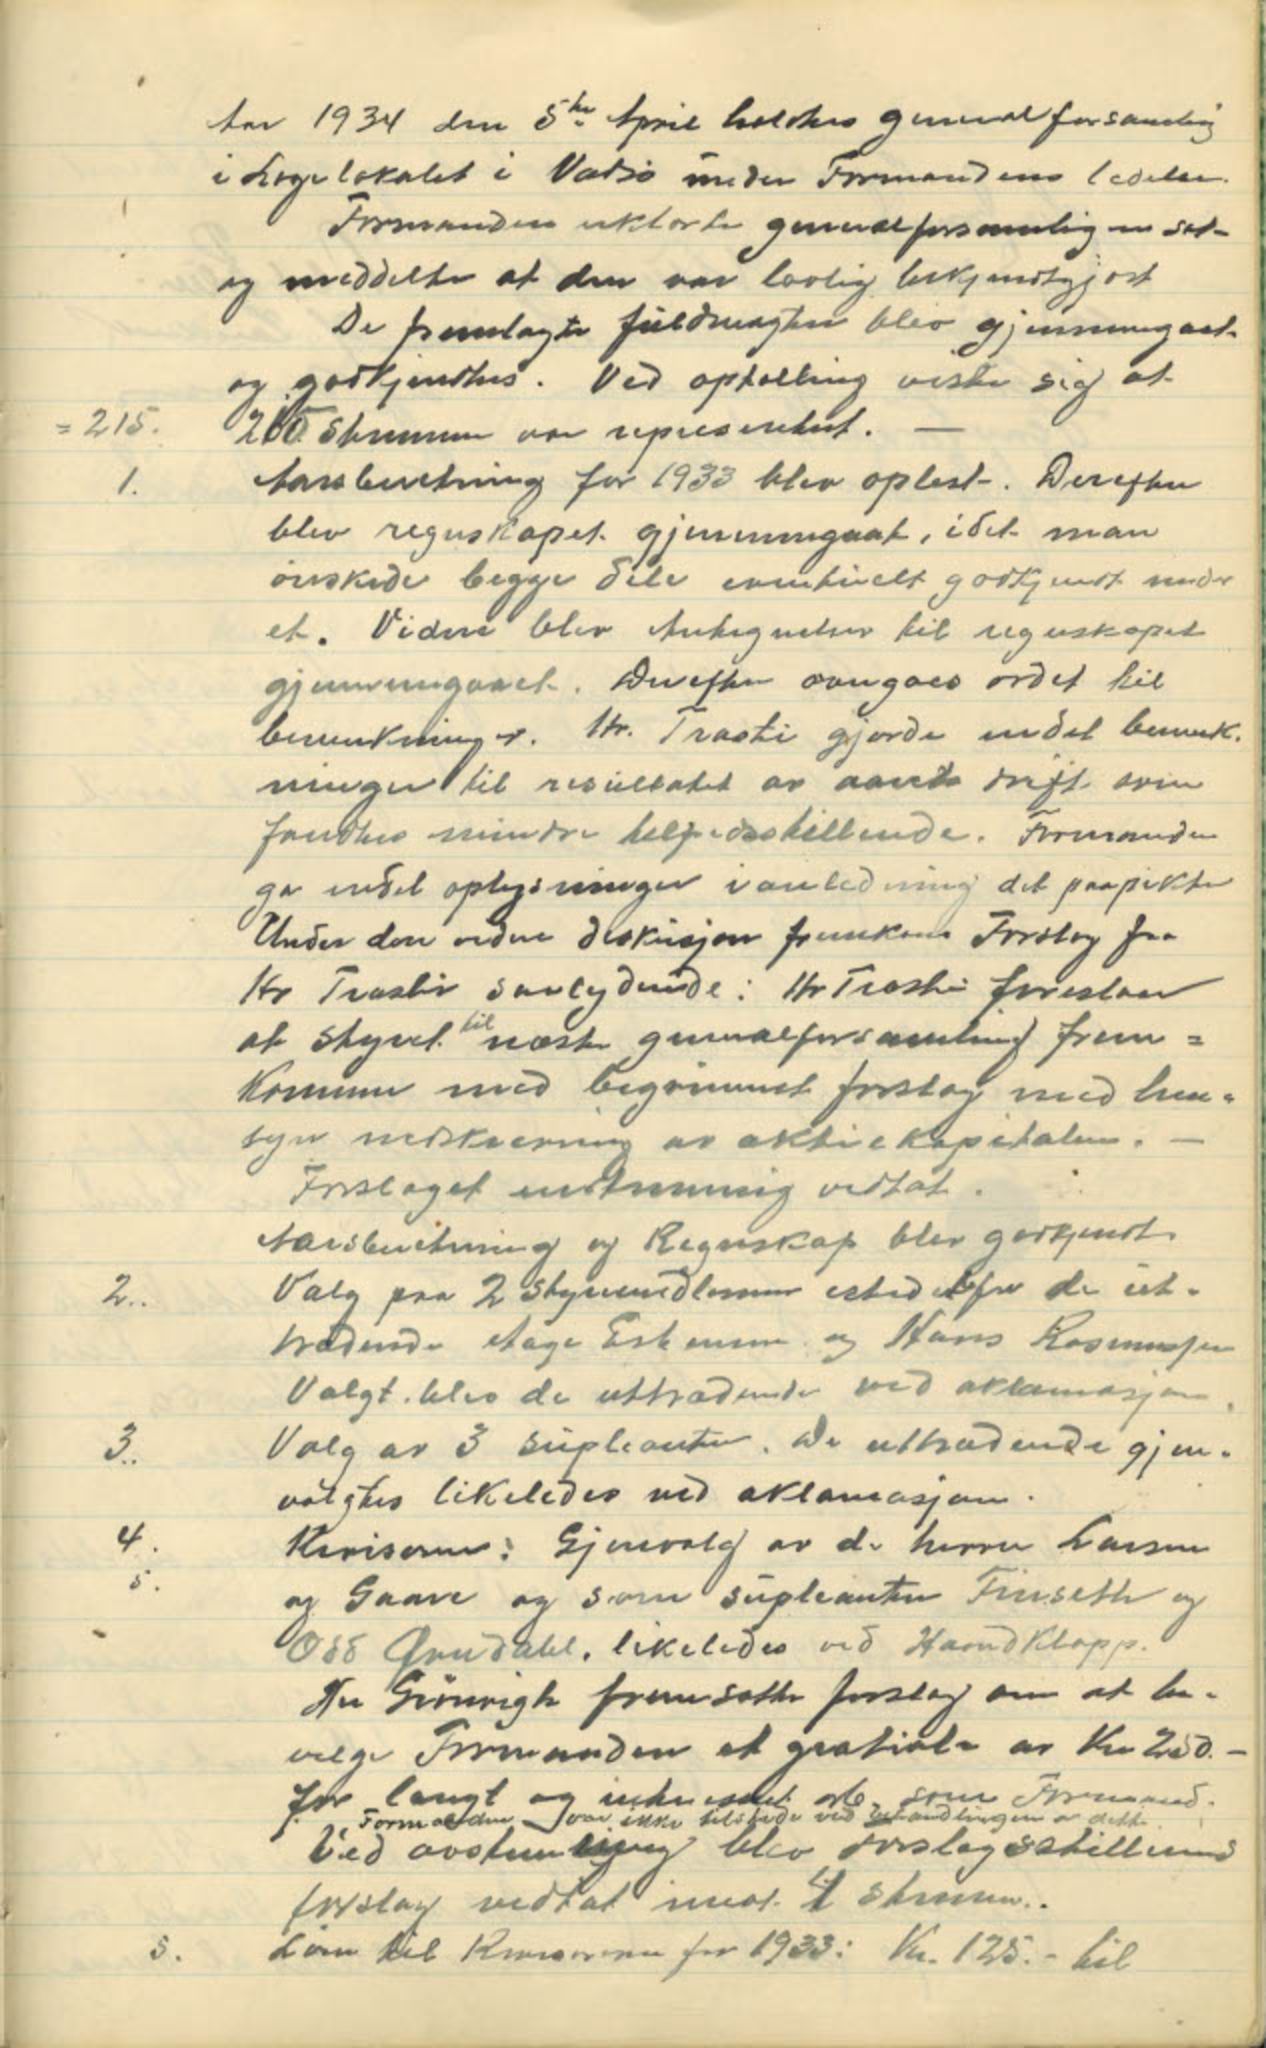 Aar 1934 den 5te April holdtes generalforsamling
i Logelokalet i Vadsö under Formandens ledelse.
Formanden erklærte generalforsamlingen sat
og meddelte at den var lovlig bekjendtgjort
De fremlagte fuldmagter blev gjennemgaat
og godkjendtes. Ved optælling viste sig at
= 215. 215 Stemmer var representert. —
1. Aarsberetning for 1933 blev oplest. Derefter
blev regnskapet gjennemgaat, idet man
önskede begge dele eventuelt godkjendt under
et. Videre blev Antegnelser til regnskapet
gjennemgaaet. Derefter overgaes ordet til
bemerkninger. Hr. Trasti gjorde endel bemerk-
ninger til resultatet av aarets drift som
fandtes mindre tilfredsstillende. Formanden
ga endel oplysninger i anledning det paapekte
Under den videre diskusjon fremkom Forslag fra
Hr Trasti saalydende: Hr Trasti foreslaar
at styret til næste generalforsamling frem =
kommer med begrunnet forslag med hen-
syn nedskrivning av aktiekapitalen. —
Forslaget enstemmig vedtat.
Aarsberetning og Regnskap blev godkjendt.
2.. Valg paa 2 styremedlemmer istedetfor de ut-
trædende Aage Esbensen og Hans Rasmussen
Valgt blev de uttrædende ved aklamasjon.
3.. Valg av 3 supleanter. De uttrædende gjen-
valgtes likeledes ved aklamasjon.
4. Revisorer: Gjenvalg av de herrer Larsen
5. og Gaare og som supleanter Finseth og
Odd Grudahl, likeledes ved Haandklapp.
Hr fremsatte forslag om at be-
vilge Formanden et gratiale av Kr 250.-
for langt og interesset arb. som Formand.
Formanden var ikke tilstede ved behandlingen av dette.
Ved avstemning blev forslagsstillerens
forslag vedtat imot 4 stemmer..
5. Lön til Revisorerne for 1933: Kr. 125.- til